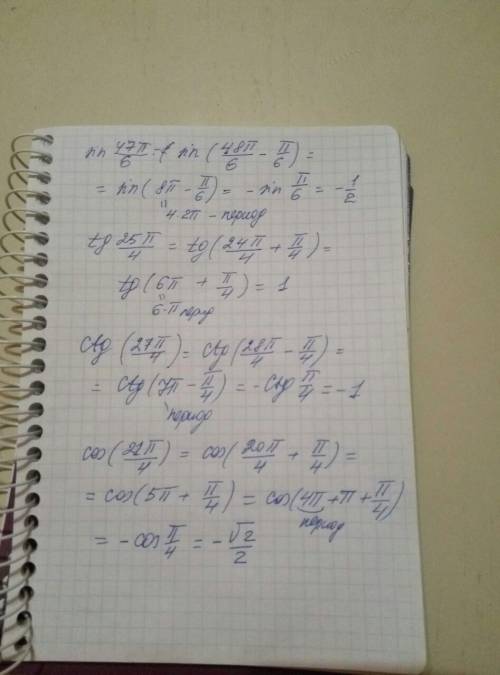 sin 47π/6 = sin(48π/6 - π/6) =
= sin(8π - π/6) = - sin π/6 = - 1/2
4·2π - период
tg 25π/4 = tg(24π/4 + π/4) =
tg(6π + π/4) = 1
6·π период
ctg(27π/4) = ctg(28π/4 - π/4) =
= ctg(7π - π/4) = - ctg π/4 = - 1
период
cos(21π/4) = cos(20π/4 + π/4) =
= cos(5π + π/4) = cos(4π + π + π/4)
период
= - cos π/4 = - √2/2